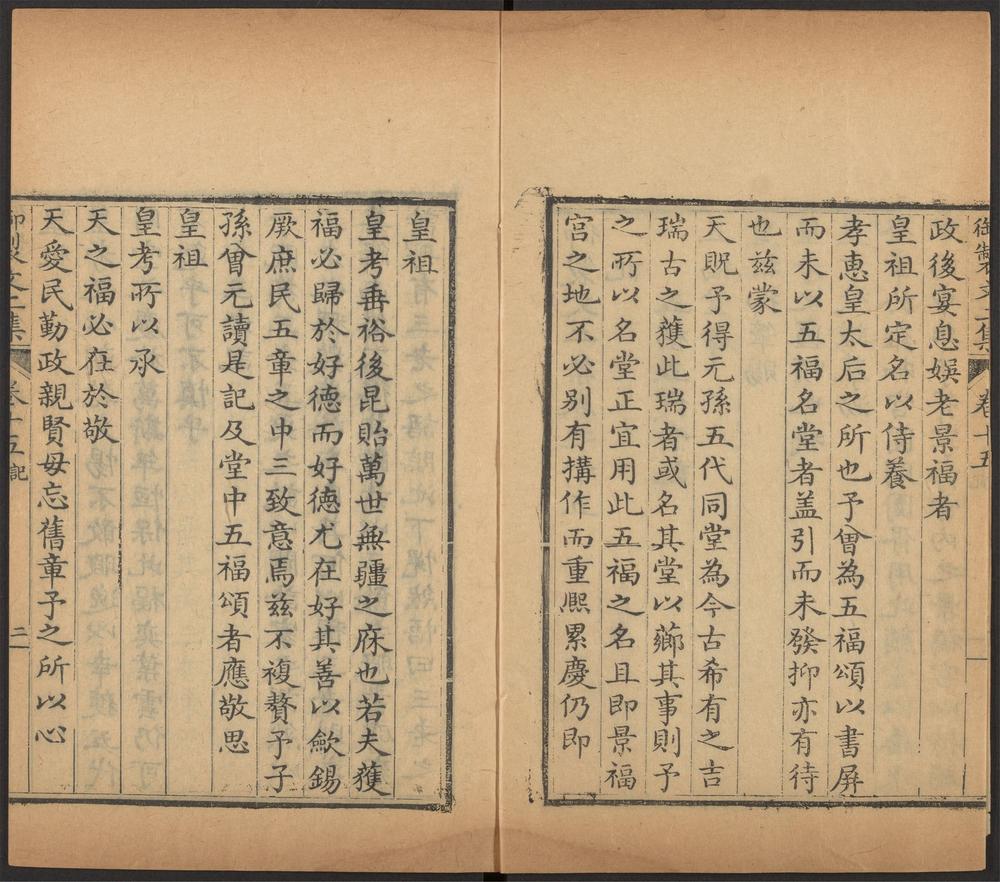 御製文二集
卷十五
政後宴息娛老景福者
皇祖所定名以侍養
孝惠皇太后之所也予曾為五福頌以書屏
而未以五福名堂者盖引而未發抑亦有待
也兹蒙
天貺予得元孫五代同堂為今古希有之吉
瑞古之獲此瑞者或名其堂以薌其事則予
之所以名堂正宜用此五福之名且即景福
宮之地不必别有搆作而重熈累慶仍即
皇祖
皇考垂裕後昆貽萬世無疆之庥也若夫獲
福必歸於好德而好德尤在好其善以歛錫
厥庶民五章之中三致意焉兹不複贅予子
孫曾元讀是記及堂中五福頌者應敬思
皇祖
皇考所以承
天之福必在於敬
天愛民勤政親賢毋忘舊章予之所以心
卷十五 記
二